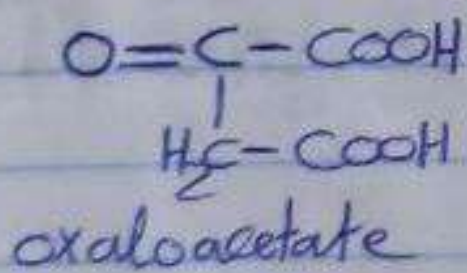 O=C-COOH
H₂C-COOH
oxaloacetate